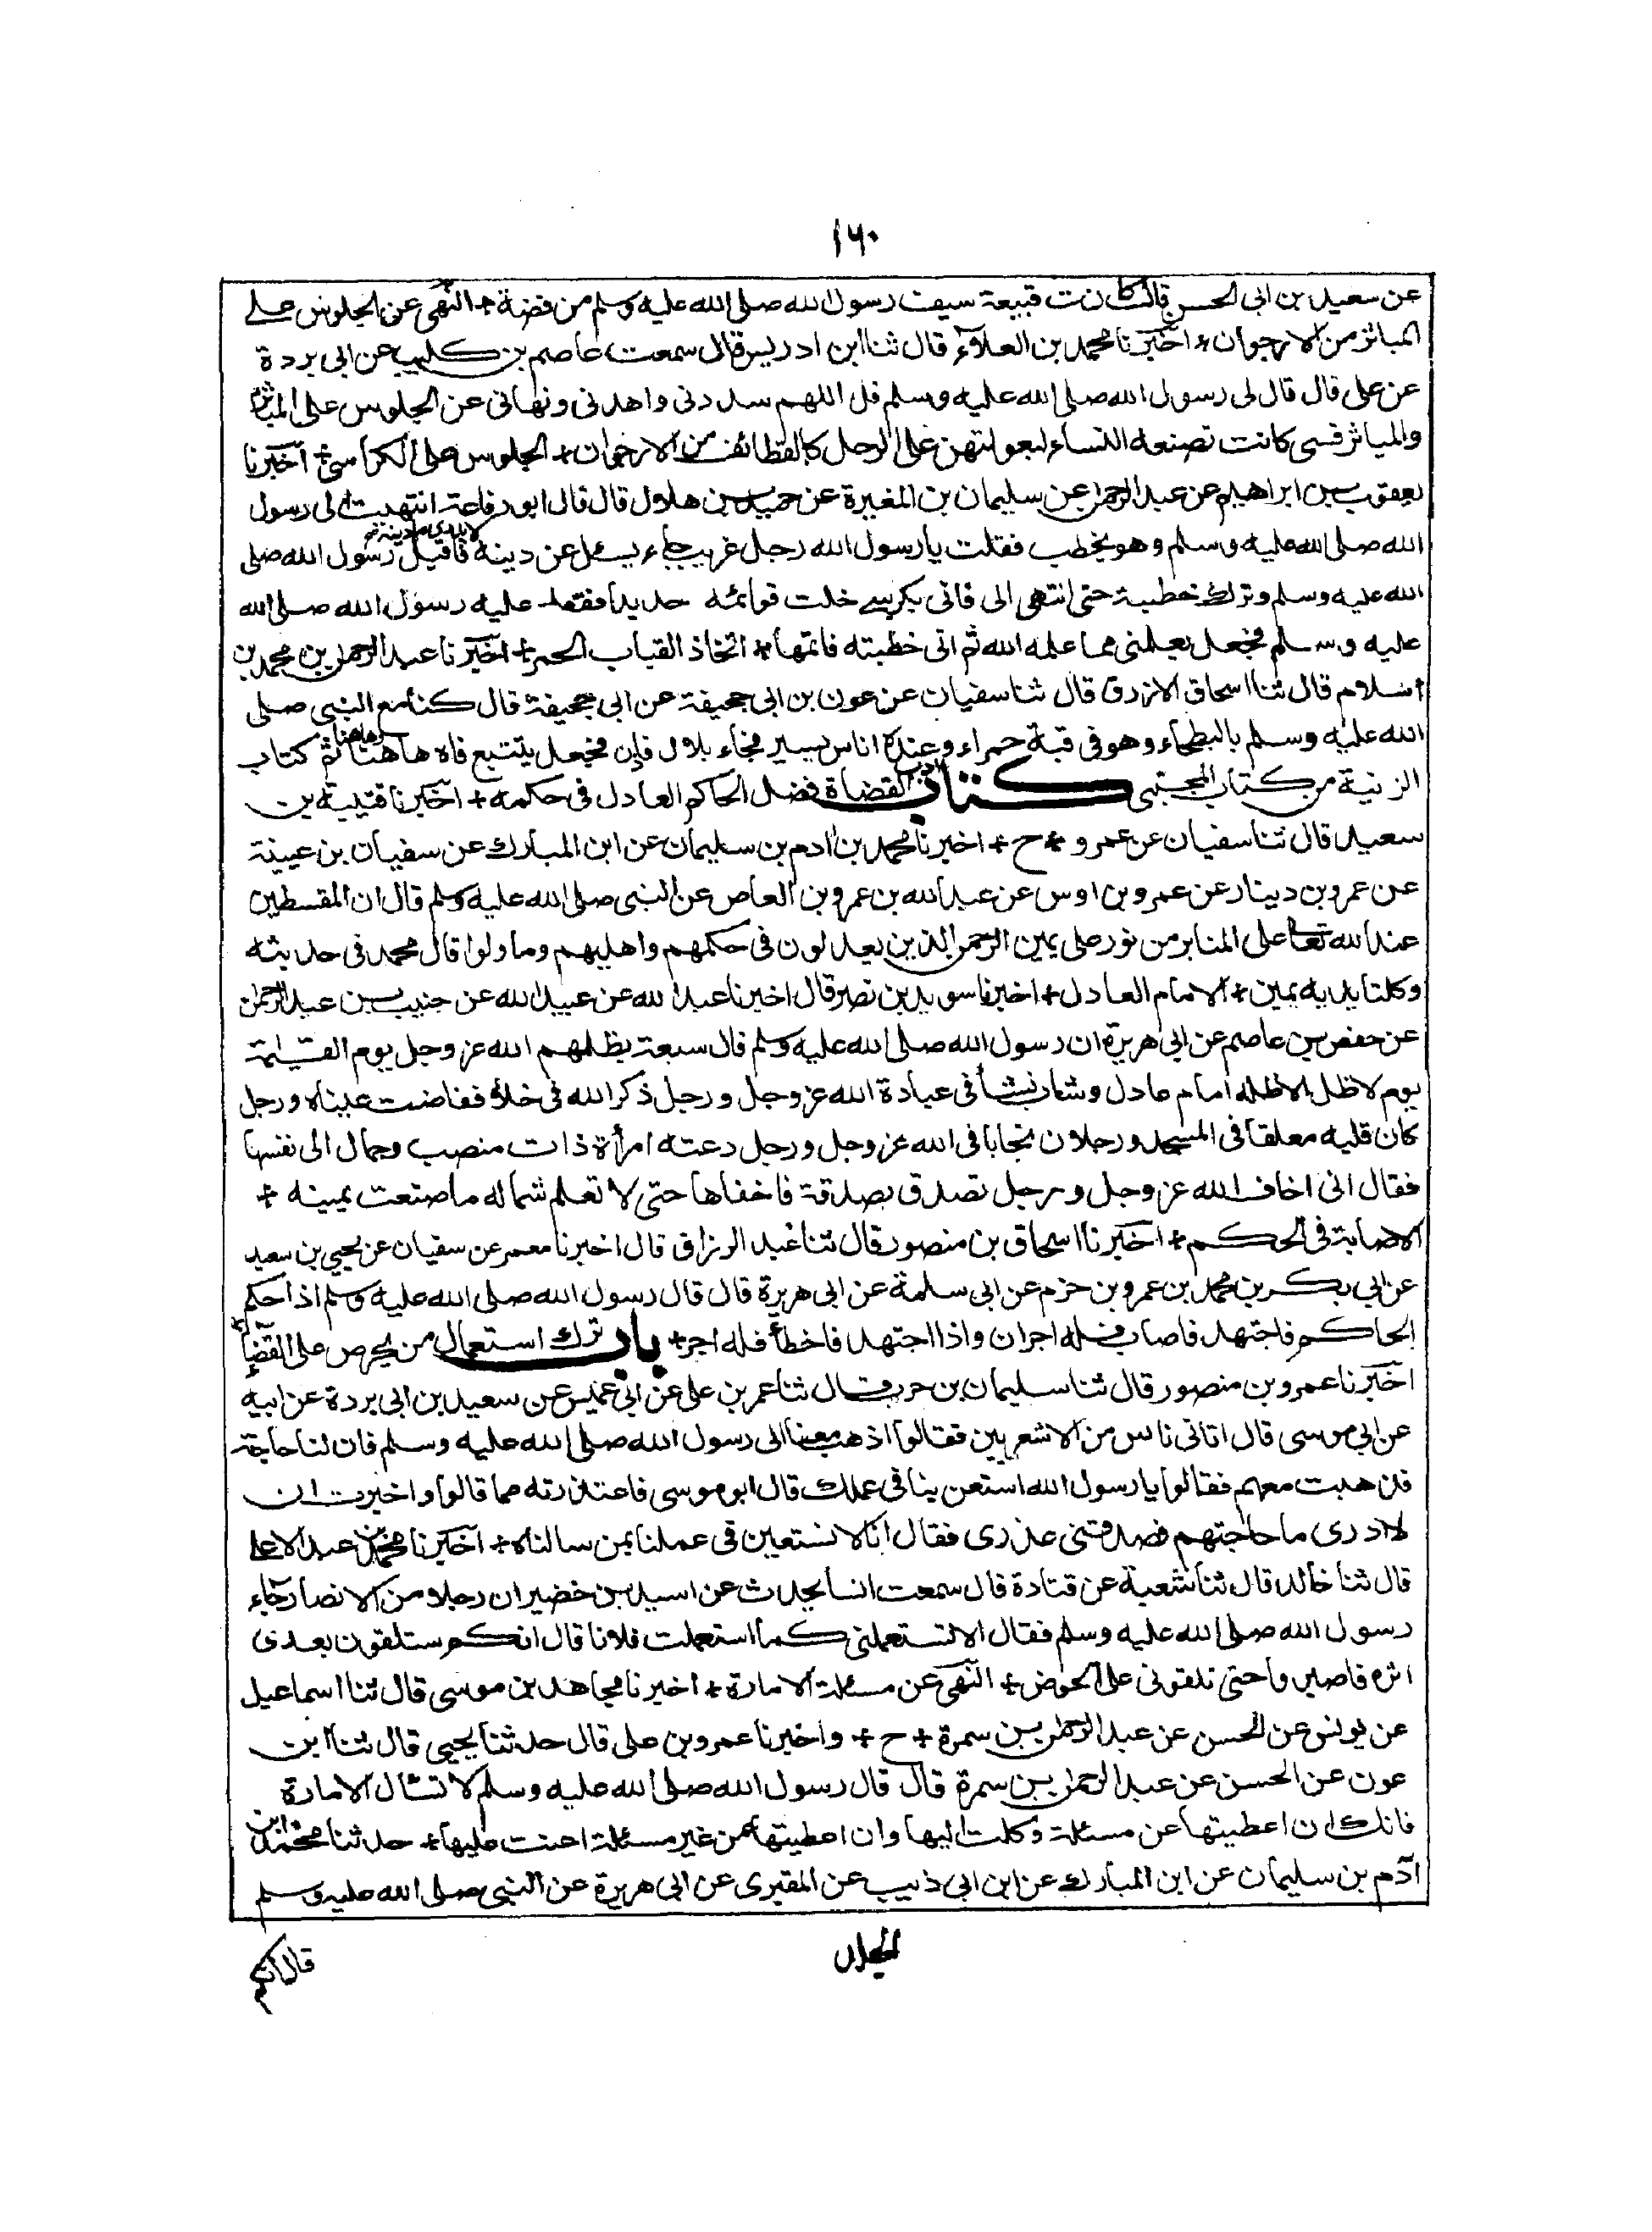 ١٦٠
عن سعيد بن ابى الحسن قال كانت قبيعة سيف رسول الله صلى الله عليه وسلم من فضة + النهى عن الجلوس على
المياثر من الارجوان + اخبرنا محمد بن العلاء قال ثنا ابن ادريس قال سمعت عاصم بن كليب عن ابى بردة
عن على قال قال لى رسول الله صلى الله عليه وسلم قل اللهم سددنى واهدنى ونهانى عن الجلوس على المياثر
والمياثر قسى كانت تصنعه النساء لبعولتهن على الرحل كالقطائف من الارجوان + الجلوس على الكراسى + اخبرنا
يعقوب بن ابراهيم عن عبد الرحمن عن سليمان بن المغيرة عن حميد بن هلال قال قال ابو رفاعة انتهيت الى رسول
الله صلى الله عليه وسلم وهو يخطب فقلت يا رسول الله رجل غريب جاء يسئل عن دينه فاقبل رسول الله صلى
الله عليه وسلم وترك خطبته حتى انتهى الى فاتى بكرسى خلت قوائمه حديدا فقعد عليه رسول الله صلى الله
عليه وسلم فجعل يعلمنى مما علمه الله ثم اتى خطبته فاتمها + اتخاذ القباب الحمر + اخبرنا عبد الرحمن بن محمد بن
سلام قال ثنا اسحاق الازرق قال ثنا سفيان عن عون بن ابى جحيفة عن ابى جحيفة قال كنا مع النبى صلى
الله عليه وسلم بالبطحاء وهو فى قبة حمراء وعنده اناس يسير فجاء بلال فاذن فجعل يتتبع فاه هاهنا وهاهنا تم كتاب
الزينة من كتاب المجتبى كتاب القضاة فضل الحاكم العادل فى حكمه + اخبرنا قتيبة بن
سعيد قال ثنا سفيان عن عمرو + ح + اخبرنا محمد بن ادم بن سليمان عن ابن المبارك عن سفيان بن عيينة
عن عمرو بن دينار عن عمرو بن اوس عن عبد الله بن عمرو بن العاص عن النبى صلى الله عليه وسلم قال ان المقسطين
عند الله تعالى على المنابر من نور على يمين الرحمن الذين يعدلون فى حكمهم واهليهم وما ولوا قال محمد فى حديثه
وكلتا يديه يمين + الامام العادل + اخبرنا سويد بن نصر قال اخبرنا عبد الله عن عبيد الله عن خبيب بن عبد الرحمن
عن حفص بن عاصم عن ابى هريرة ان رسول الله صلى الله عليه وسلم قال سبعة يظلهم الله عز وجل يوم القيامة
يوم لا ظل الا ظله امام عادل وشاب نشأ فى عبادة الله عز وجل ورجل ذكر الله فى خلاء ففاضت عيناه ورجل
كان قلبه معلقا فى المسجد ورجلان تحابا فى الله عز وجل ورجل دعته امرأة ذات منصب وجمال الى نفسها
فقال انى اخاف الله عز وجل ورجل تصدق بصدقة فاخفاها حتى لا تعلم شماله ما صنعت يمينه +
الاصابة فى الحكم + اخبرنا اسحاق بن منصور قال ثنا عبد الرزاق قال اخبرنا معمر عن سفيان عن يحيى بن سعيد
عن ابى بكر بن محمد بن عمرو بن حزم عن ابى سلمة عن ابى هريرة قال قال رسول الله صلى الله عليه وسلم اذا حكم
الحاكم فاجتهد فاصاب فله اجران واذا اجتهد فاخطأ فله اجر + باب ترك استعمال من يحرص على القضاء
اخبرنا عمرو بن منصور قال ثنا سليمان بن حرب قال ثنا عمر بن على عن ابى عميس عن سعيد بن ابى بردة عن ابيه
عن ابى موسى قال اتانى ناس من الاشعريين فقالوا اذهب معنا الى رسول الله صلى الله عليه وسلم فان لنا حاجة
فذهبت معهم فقالوا يا رسول الله استعن بنا فى عملك قال ابو موسى فاعتذرته مما قالوا واخبرت ان
لا ادرى ما حاجتهم فصدقنى عذرى فقال انا لا نستعين فى عملنا بمن سالناه + اخبرنا محمد بن عبد الاعلى
قال ثنا خالد قال ثنا شعبة عن قتادة قال سمعت انسا يحدث عن اسيد بن حضير ان رجلا من الانصار جاء
رسول الله صلى الله عليه وسلم فقال الا تستعملنى كما استعملت فلانا قال انكم ستلقون بعدى
اثرة فاصبروا حتى تلقونى على الحوض + النهى عن مسئلة الامارة + اخبرنا مجاهد بن موسى قال ثنا اسماعيل
عن يونس عن الحسن عن عبد الرحمن بن سمرة + ح + واخبرنا عمرو بن على قال حدثنا يحيى قال ثنا ابن
عون عن الحسن عن عبد الرحمن بن سمرة قال قال رسول الله صلى الله عليه وسلم لا تسأل الامارة
فانك ان اعطيتها عن مسئلة وكلت اليها وان اعطيتها من غير مسئلة اعنت عليها + حدثنا محمد ابن
آدم بن سليمان عن ابن المبارك عن ابن ابى ذئيب عن المقبرى عن ابى هريرة عن النبى صلى الله عليه وسلم
قال انكم